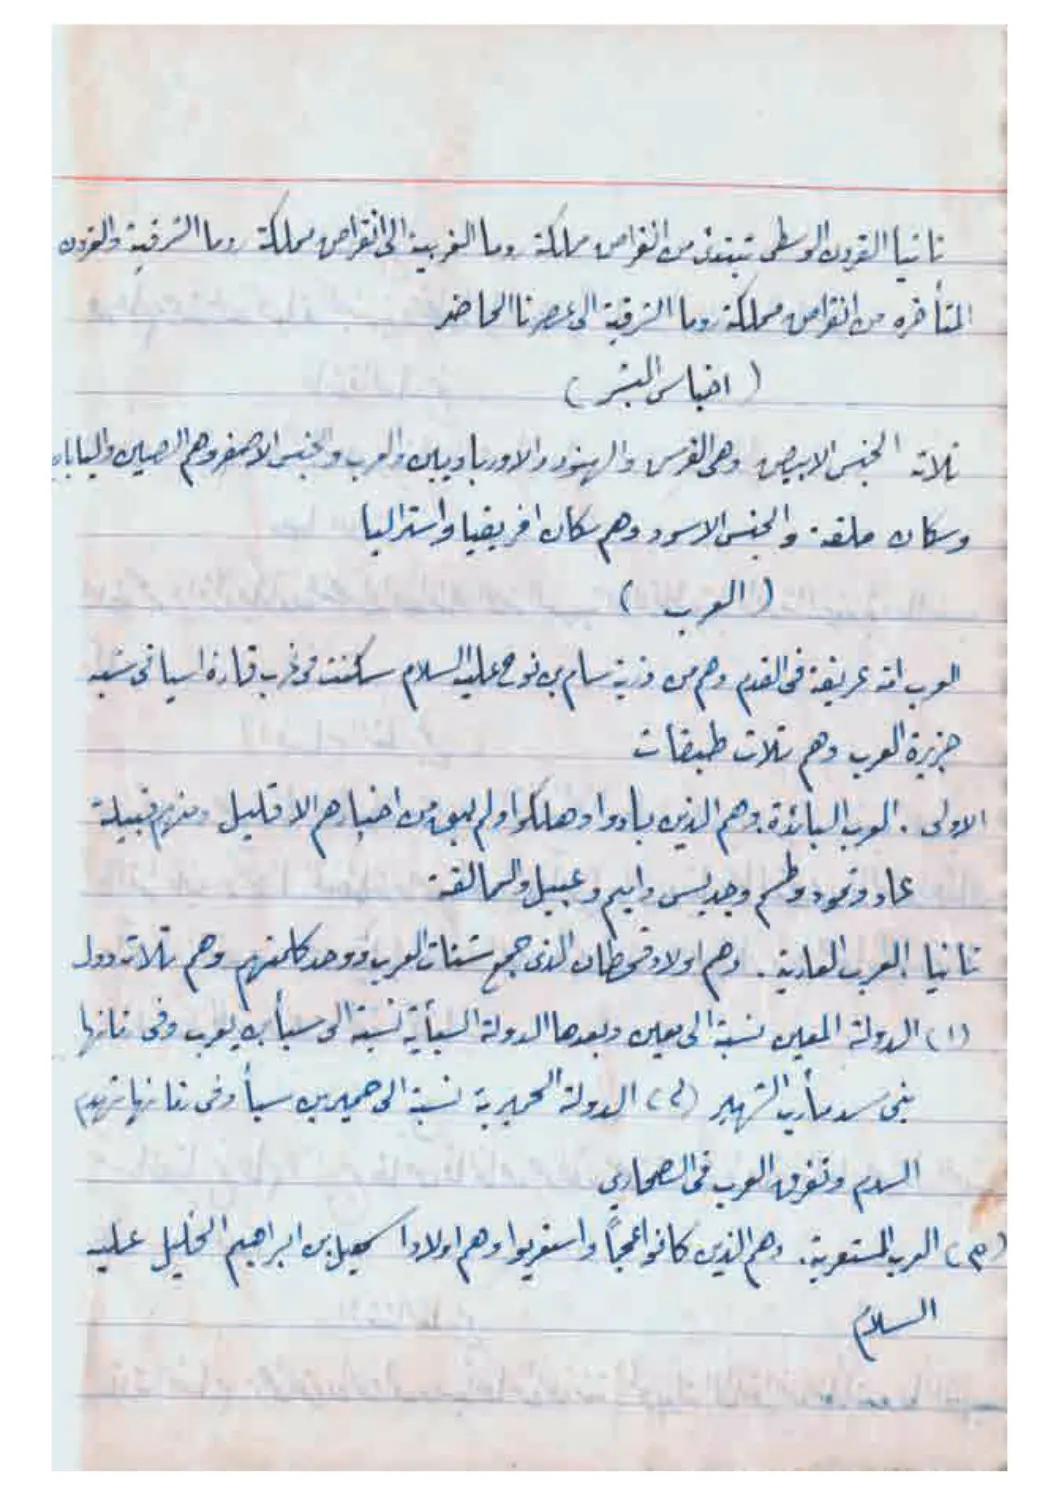 ثانيا القرون الوسطى تبتدئ من انقراض مملكة روما الغربية الى انقراض مملكة روما الشرقية والقرون
المتأخره من انقراض مملكة روما الشرقية الى عصرنا الحاضر
( اجناس البشر )
ثلاثه الجنس الابيض وهى الفرس والهنود والاورباويين والعرب والجنس الاصفر وهم الصين واليابان
وسكان ملقة والجنس الاسود وهم سكان افريقيا واستراليا
( العرب )
العرب امة عريقة فى القدم وهم من ذرية سام بن نوح عليه السلام سكنت فى غرب قارة اسيا فى شبه
جزيرة العرب وهم ثلاث طبقات
الاولى . العرب البائدة . وهم الذين بادوا وهلكوا ولم يبق من اخبارهم الا قليل ومنهم قبيلة
عاد وثمود وطسم وجديس واميم وعبيل والعمالقة
ثانيا العرب العاربة . وهم اولاد قحطان الذى جمع شتات العرب ووحد كلمتهم وهم ثلاثه دول
(١) الدولة المعين نسبة الى معين وبعدها الدولة السبأية نسبة الى سبأ بن يعرب وفى زمانها
بنى سد مأرب الشهير (٢) الدولة الحميرية نسبة الى حمير بن سبأ وفى زمانها تهدم
السد وتفرق العرب فى الصحارى
(٣) العرب المستعربة . وهم الذين كانوا عجماً واستعربوا وهم اولاد اسمعيل بن ابراهيم الخليل عليه
السلام